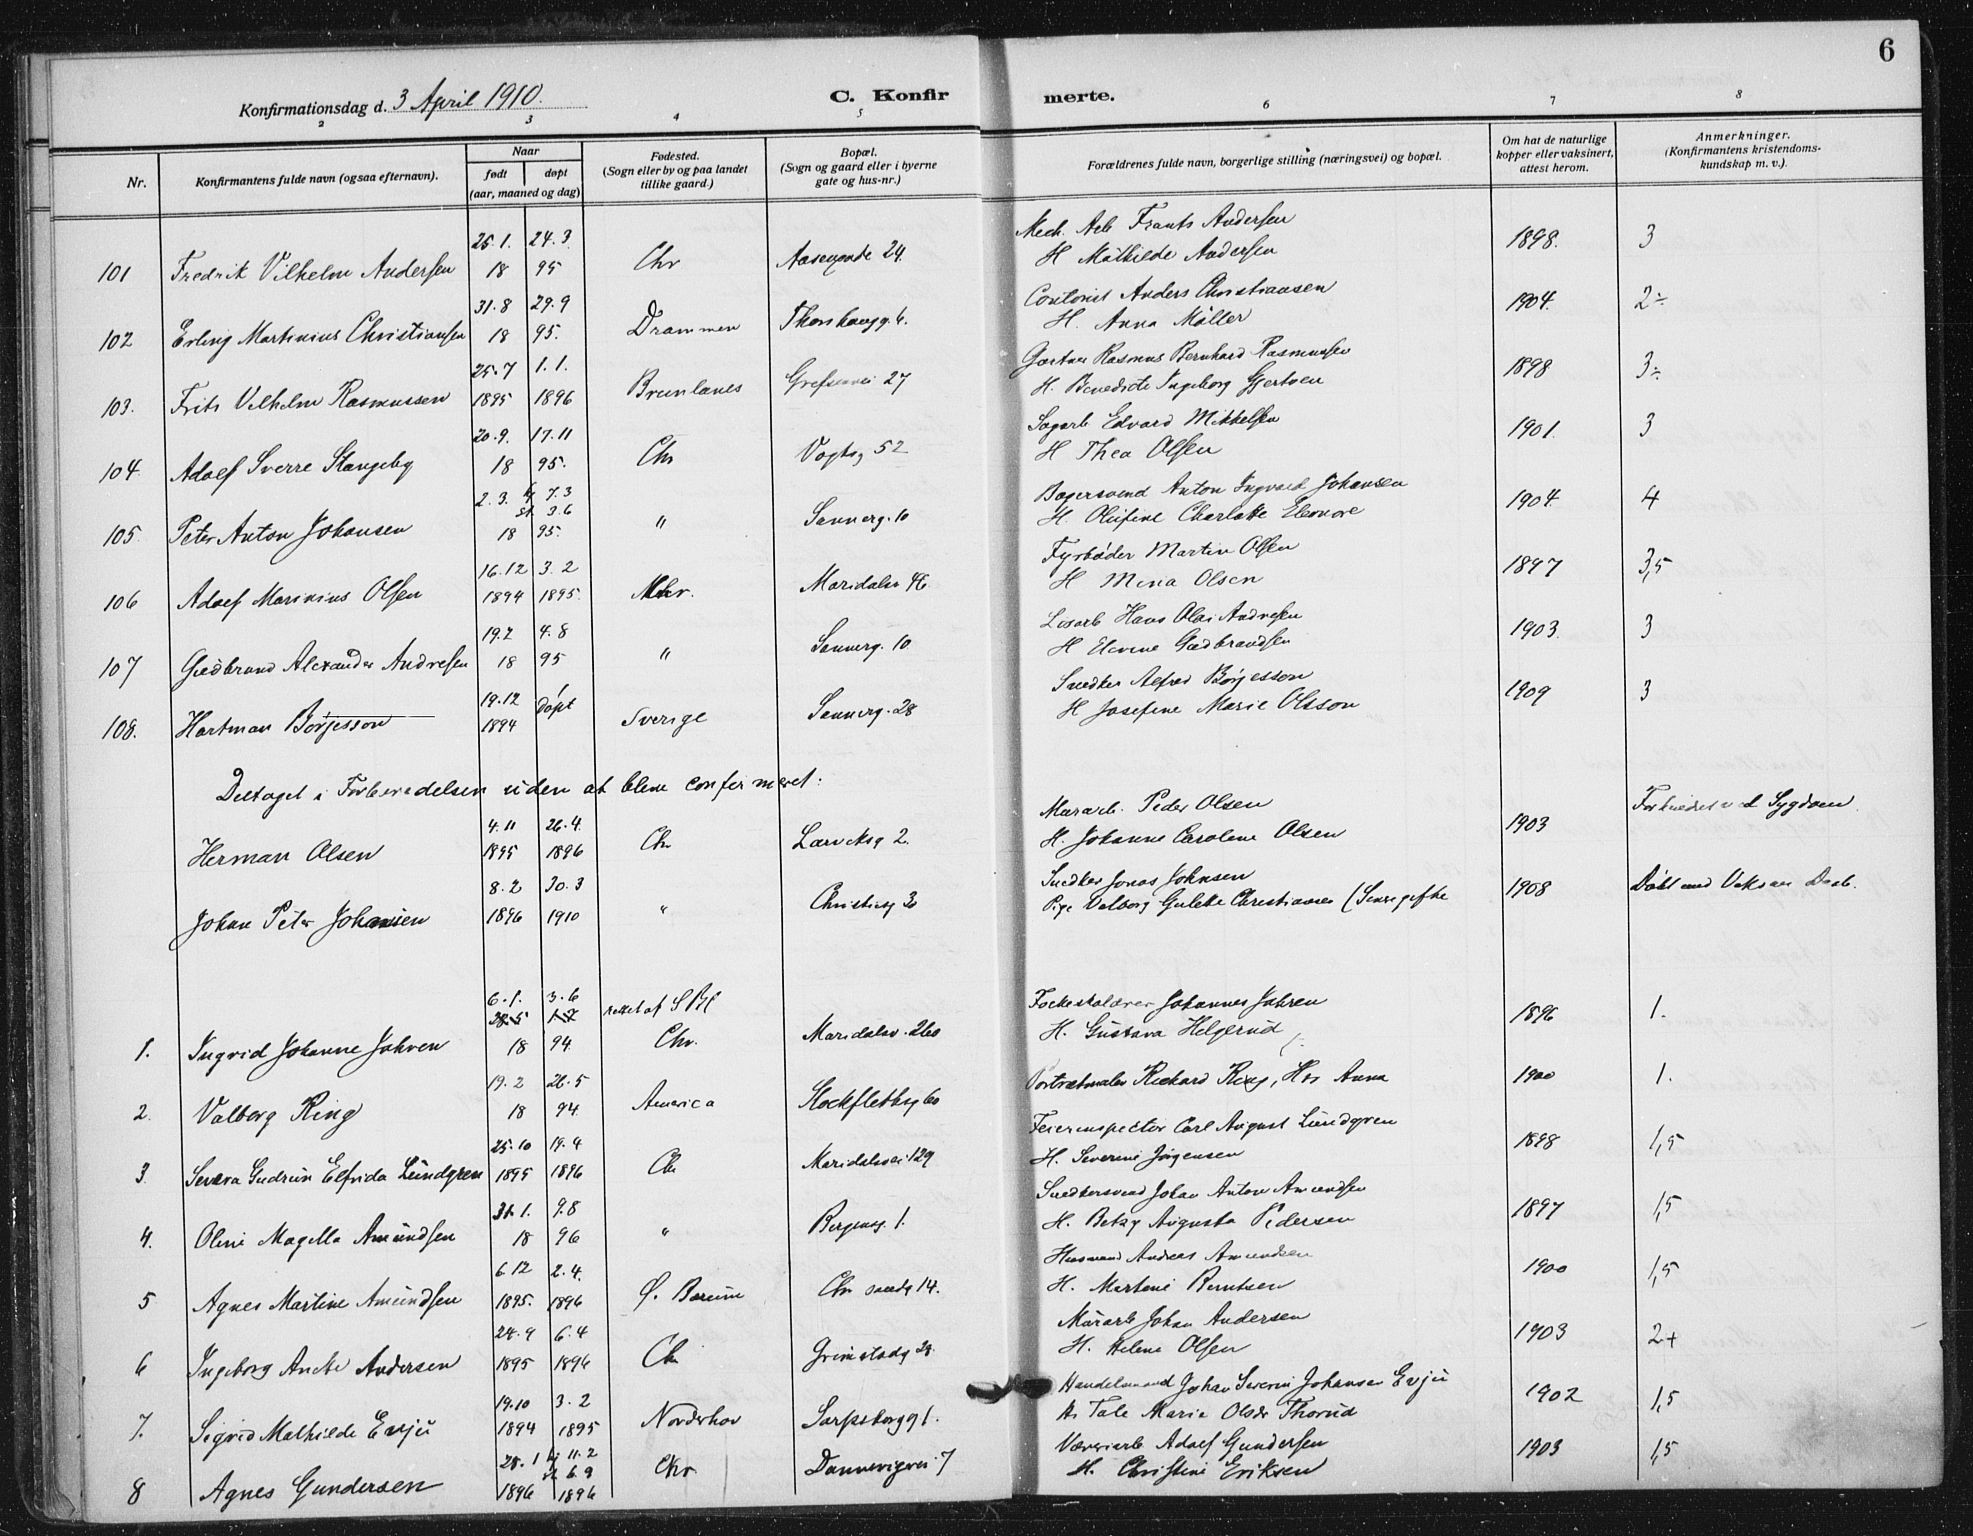 6
Konfirmationsdag d. 3 April 1910.
C. Konfir merte.
2 3 4 5 6 7 8
Nr.
Konfirmantens fulde navn (ogsaa efternavn).
Naar
født døpt
(aar, maaned og dag)
Fødested.
(Sogn eller by og paa landet
tillike gaard.)
Bopæl.
(Sogn og gaard eller i byerne
gate og hus-nr.)
Forældrenes fulde navn, borgerlige stilling (næringsvei) og bopæl.
Om hat de naturlige
kopper eller vaksinert,
attest herom.
Anmerkninger.
(Konfirmantens kristendoms-
kundskap m. v.).
25.1. 24.3 Mech. Arb Frants Andersen
101 Fredrik Vilhelm Andersen 18 95 Chr 24 H Mathilde Andersen 1898. 3
31.8 29.9 Contorist Anders Christiansen
102 Erling Martinius Christiansen 18 95. Drammen Thorshaugg. 6. H. Anna Møller 1904. 2÷
25.7 1.1. Gartner Rasmus Bernhard Rasmussen
103. Frits Vilhelm Rasmussen 1895 1896 Brunlanes Grefsenvei 27 H. Benedicte Ingeborg Gjertsen 1898 3÷
20.9. 17.11 Sagarb Edvard Mikkelsen
104. Adolf Sverre Stangeby 18 95. Chr Vogtsg 52 H Thea Olsen 1901. 3
2.3. 7.3
3.6 Bagersvend Anton Ingvald Johansen
105. Peter Anton Johansen 18 95. " Sannerg. 10 H. Olufine Charlotte Eleonore 1904. 4
16.12 3.2 Fyrbøder Martin Olsen
106 Adolf Marinius Olsen 1894 1895. Chr. Maridalsv 46 H Mina Olsen 1897 3,5
19.2 4.8 Løsarb Hans Olai Andresen
107 Gudbrand Alexander Andresen 18 95 " Sannerg. 10 H Elvine Gudbrandsen 1903. 3
19.12 døpt Snedker Alfred Börjesson
108. Hartman Börjesson 1894 Sverige Sannerg. 28 H Josefine Marie Olsson 1909 3
Deltaget i Forberedelsen uden at bleve confirmeret:
4.11 26.4. Murarb. Peder Olsen
Herman Olsen 1895 1896 Chr Larviksg 2. H. Johanne Caroline Olsen 1903 Forhindret ved Sygdom
8.2 30.3 Snedker Jonas Johnsen
Johan Peter Johansen 1896 1910 " Christiesg 3 Pige Valborg Gulette Christiansen (Senere gifte 1908 Døbt ved
6.1. 3.6 rettet af Folkeskolelærer Johannes Jahren
28.5 1.7
1. Ingrid Johanne Jahren 18 94 Chr. Maridalsv. 260 H. Gustava Helgerud 1896 1.
19.2 26.5
2. Valborg Ring 18 94. America Stockflethsg 60 Portrætmaler Rickard Ring, Hus Anna 1900 1.
25.10 19.4 Feierinspector Carl August Lundgren
3. Gudrun Elfrida Lundgren 1895 1896 Chr Maridalsvei 129 H. Severine Jörgensen 1898 1,5
31.1. 9.8 Snedkersvend Johan Anton Amundsen
4. Oline Magella Amundsen 18 96 " Bergensg. 1. H. Betzy Augusta Pedersen 1897 1,5
6.12 2.4. Husmand Andreas Amundsen
5 Agnes Martine Amundsen 1895. 1896 Ø. Bærum Chr sandg 14. H. Martine Berntsen 1900 1,5
24.9 6.4 Murarb Johan Andersen
6 Ingeborg Andersen 1895 1896 Chr Grimstadg 28 H. Helene Olsen 1903 2+
19.10 3.2 Handelsmand Johan Severin Johansen Evju
7. Sigrid Mathilde Evju 1894 1895 Norderhov Sarpsborgg 1. Hs Tale Marie Olsdr Thorud 1902 1,5
28.1 11.2
6.9 Væveriarb Adolf Gundersen
8 Agnes Gundersen 1896 1896 Chr. Dannevigsvei 7 H. Christine Eriksen 1903 1,5